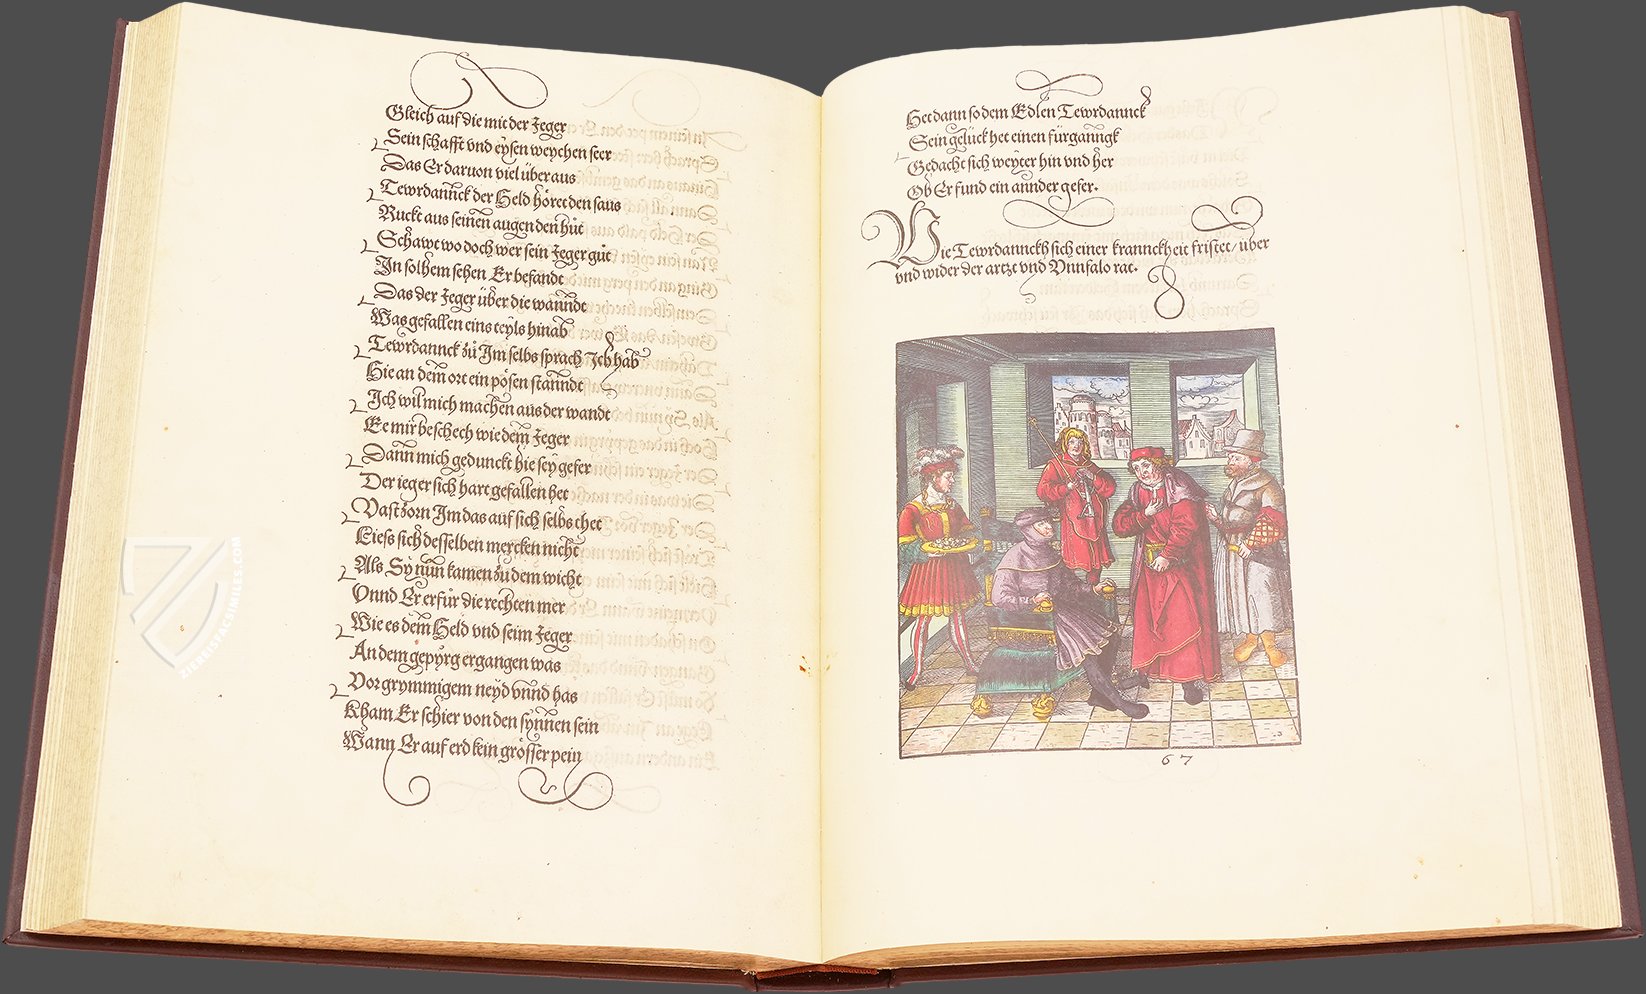 Gleich auf die mit der Jeger
Sein schafft vnd eysen weychen seer
Das Er daruon viel über aus
Tewrdannck der Held höret den saus
Ruckt aus seinen augen den hůt
Schawt wo doch wer sein Jeger gůt
In solhem sehen Er befandt
Das der Jeger über die wanndt
Was gefallen eins teyls hinab
Tewrdannck zů Im selbs sprach Ich hab
Hie an dem ort ein pösen stanndt
Ich wil mich machen aus der wandt
Ee mir beschech wie dem Jeger
Dann mich geduncke hie sey gefer
Der ieger sich hart gefallen het
Vast zorn Im das auf sich selbs thet
Liess sich desselben mercken nicht
Als Sy nůn kamen zů dem wicht
Vnnd Er erfůr die rechten mer
Wie es dem Held vnd seim Jeger
An dem gepyrg ergangen was
Vor grymmigem neyd vnnd has
Kham Er schier von den synnen sein
Wann Er auf erd kein grösser pein
Het dann so dem Edlen Tewrdannck
Sein gelück het einen fürganngk
Gedacht sich weyter hin vnd her
Ob Er fund ein annder gefer.
Wie Tewrdannckh sich einer kranckheit fristet / über
vnd wider der artzt vnd Vnnfalo rat.
67
ZIEREISFACSIMILES.COM